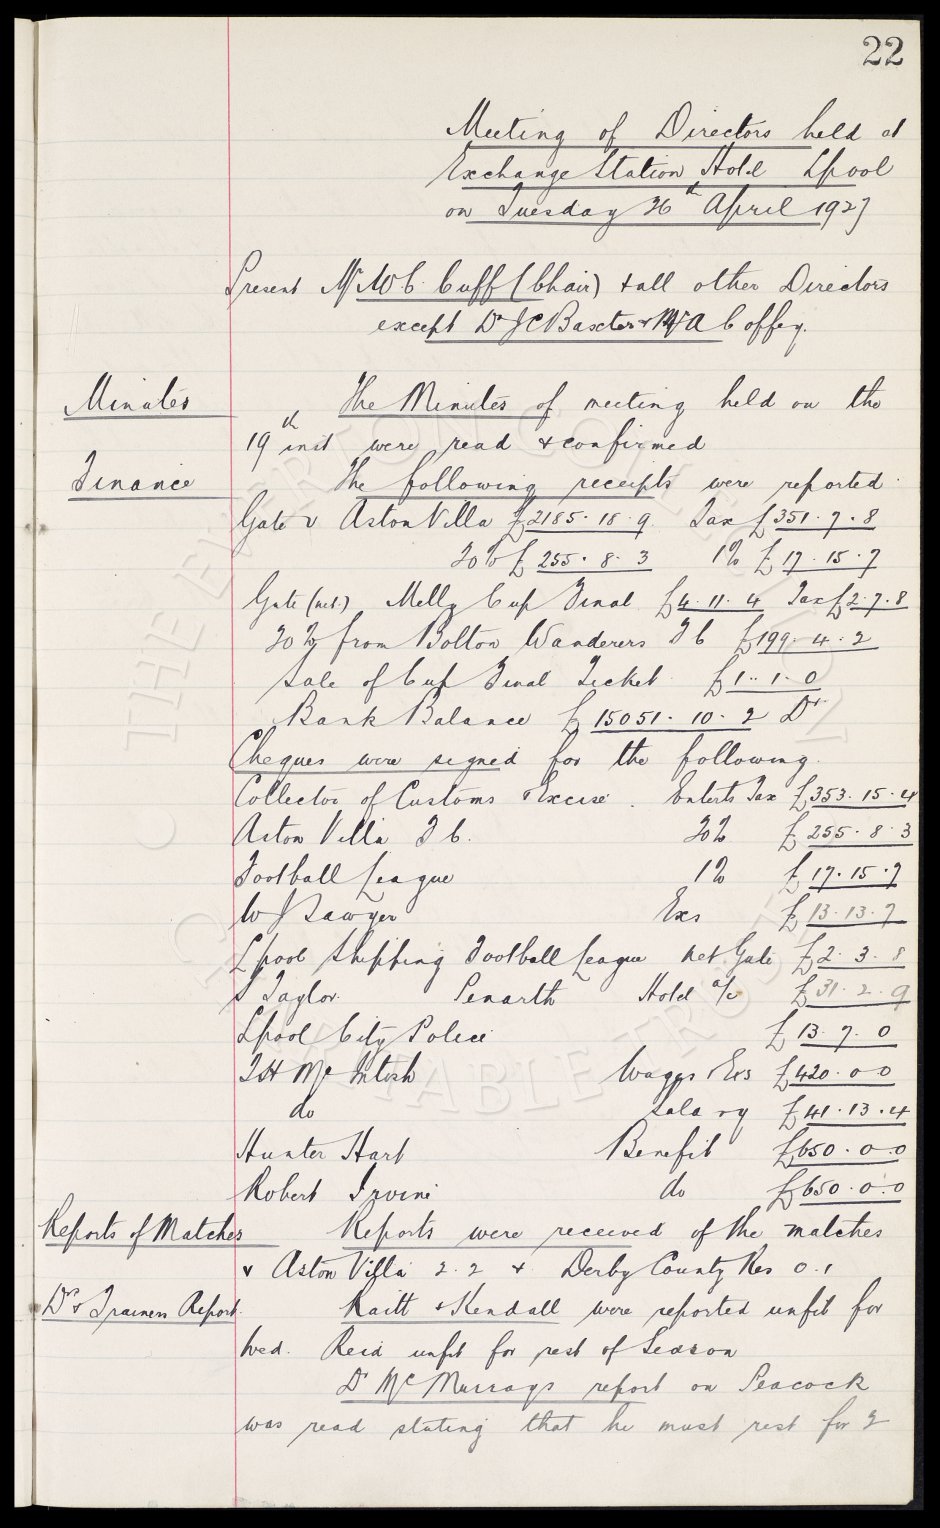 22
Meeting of Directors held at
Exchange Station Hotel Lpool
on Tuesday 26th April 1927
Present Mr W C Cuff (Chair) & all other Directors
except Dr J C Baxter & Mr A Coffey.
Minutes The Minutes of meeting held on the
19th inst were read & confirmed
Finance The following receipts were reported
Gate v Aston Villa £2185.18.9 Tax £351.7.8
20% £255.8.3 1% £17.15.7
Gate (net.) Melly Cup Final £4.11.4 Tax £2.7.8
20% from Bolton Wanderers F C £199.4.2
Sale of Cup Final Ticket £1.1.0
Bank Balance £15051.10.2 Dr.
Cheques were signed for the following.
Collector of Customs & Excise. Enterts Tax £353.15.4
Aston Villa F C. 20% £255.8.3
Football League 1% £17.15.7
W J Sawyer Exs £13.13.7
Lpool Shipping Football League net Gate £2.3.8
S Taylor. Penarth Hotel a/c £31.2.9
Lpool City Police £13.7.0
T H McIntosh Wages & Exs £420.0.0
do Salary £41.13.4
Hunter Hart Benefit £650.0.0
Robert Irvine do £650.0.0
Reports of Matches Reports were received of the matches
v Aston Villa 2.2 & Derby County Res 0.1
Dr & Trainers Report. Raitt & Kendall were reported unfit for
Wed. Reid unfit for rest of Season
Dr McMurrays report on Peacock
was read stating that he must rest for 2
© THE EVERTON COLLECTION CHARITABLE TRUST